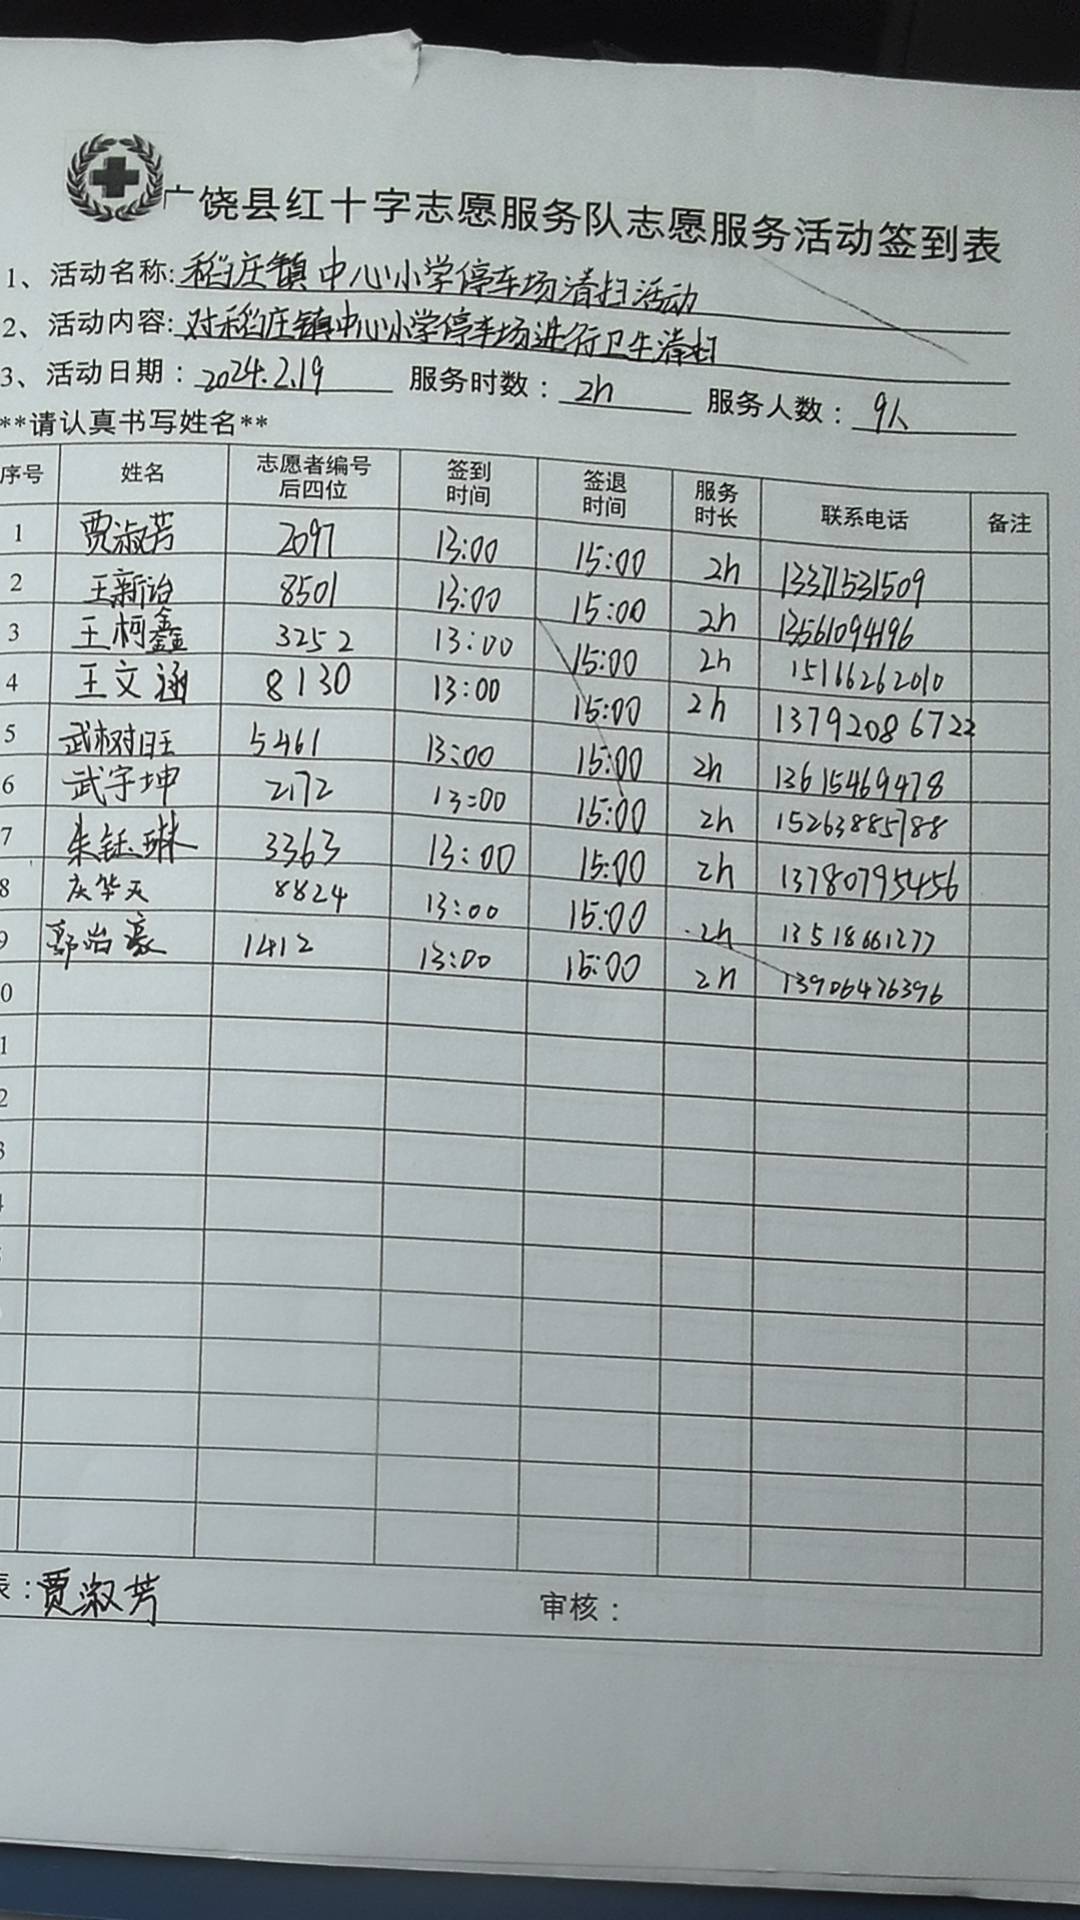 广饶县红十字志愿服务队志愿服务活动签到表
1、活动名称:稻庄镇中心小学停车场清扫活动
2、活动内容:对稻庄镇中心小学停车场进行卫生清扫
3、活动日期:2024.2.19 服务时数:2h 服务人数:9人
**请认真书写姓名**
序号 姓名 志愿者编号后四位 签到时间 签退时间 服务时长 联系电话 备注
1 贾淑芳 2097 13:00 15:00 2h 13371531509
2 王新治 8501 13:00 15:00 2h 13561094196
3 王柯鑫 3252 13:00 15:00 2h 15166262010
4 王文涵 8130 13:00 15:00 2h 13792086722
5 武树旺 5461 13:00 15:00 2h 13615469478
6 武宇坤 2172 13:00 15:00 2h 15263885788
7 朱钰琳 3363 13:00 15:00 2h 13780795456
8 庆华天 8824 13:00 15:00 2h 13518661277
9 郭治豪 1412 13:00 15:00 2h 13906476396
0
1
2
3
表:贾淑芳 审核: